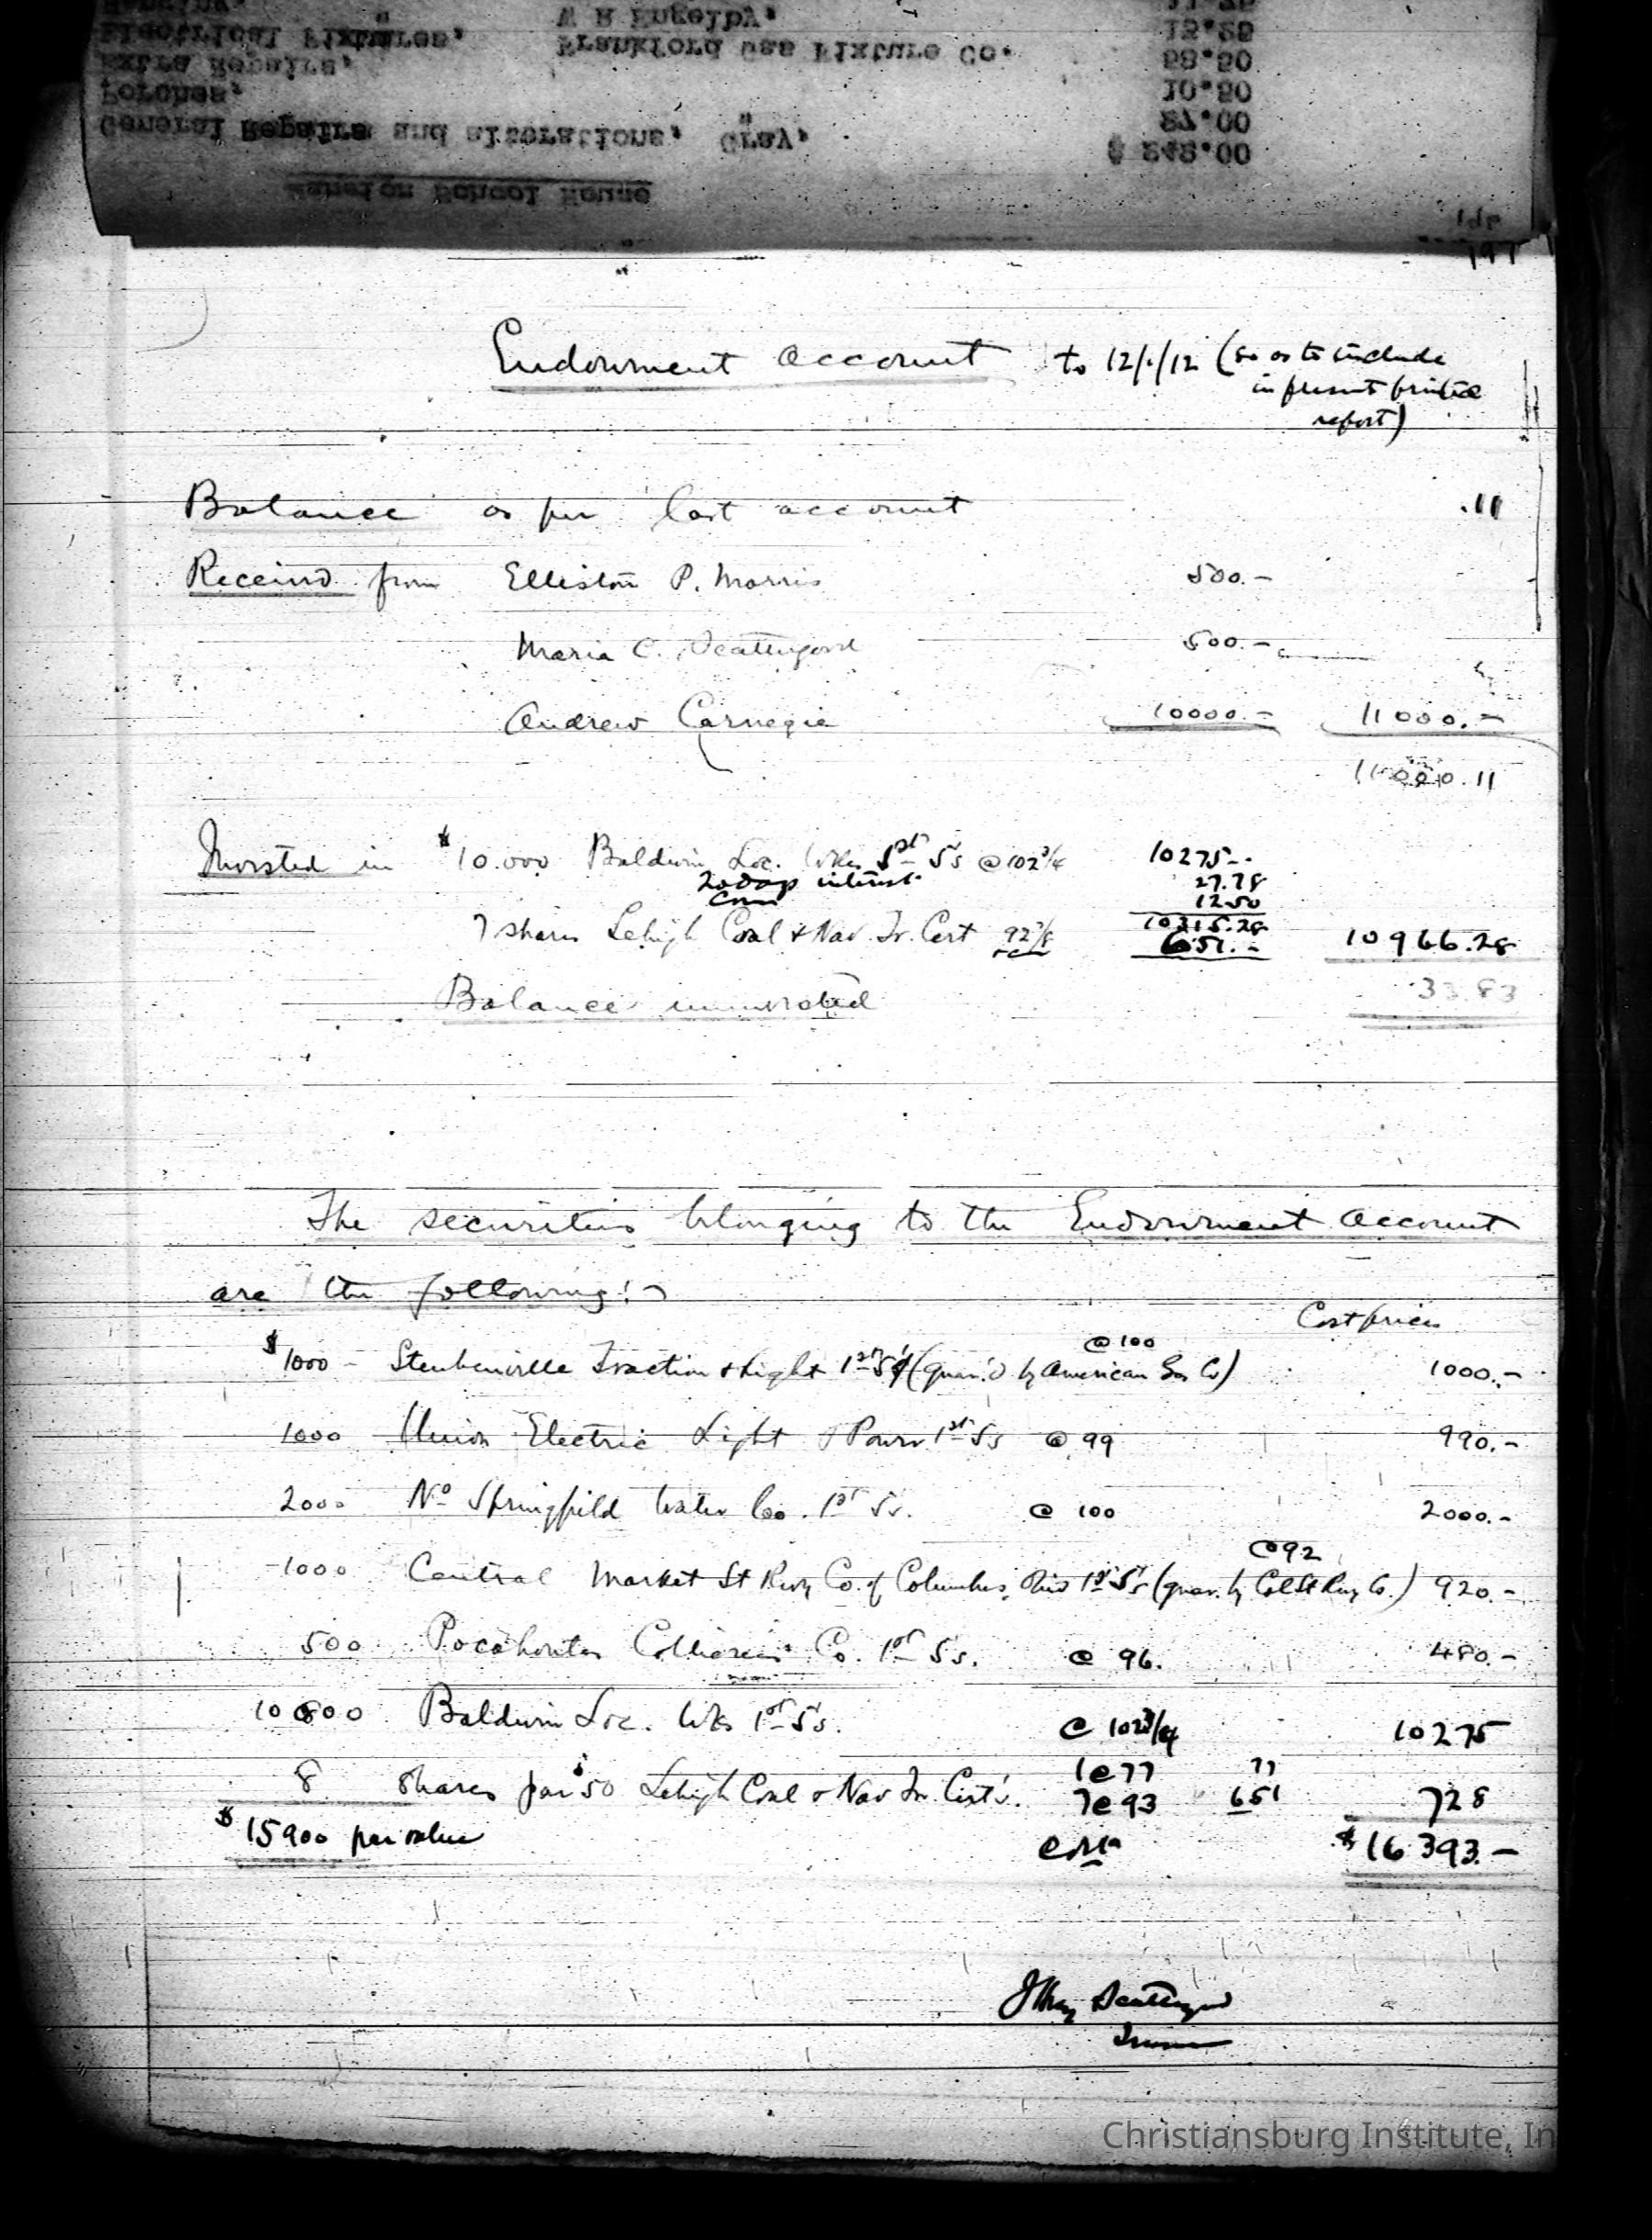 Wenston School House
$ 242.00
General Repairs and alterations, Gray, 87.00
Porches, " 10.50
Extra Repairs, 59.50
Electrical Fixtures, Frankford Gas Fixture Co. 15.25
W R Engelby,
197
Endowment account to 12/1/12 (so as to include
in present printed
report)
Balance as per last account .11
Received from Elliston P. Morris 500.-
Maria C. Scattergood 500.-
Andrew Carnegie 10000.- 11000.-
11000.11
Invested in $10.000 Baldwin Loc. Wks 1st 5s @ 102 3/4 10275-.
20 days interest 27.78
Com 12.50
10315.28
7 shares Lehigh Coal & Nav. Tr. Cert 92 7/8 651.- 10966.28
Balance uninvested 33.83
The securities belonging to the Endowment account
are the following:-
Cost price
$1000 - Steubenville Traction & Light 1st 5s (guar.'d by American Gas Co) @ 100 1000.-
1000 Union Electric Light & Power 1st 5s @ 99 990.-
2000 No Springfield Water Co. 1st 5s. @ 100 2000.-
1000 Central Market St Rwy Co. of Columbus, Ohio 1st 5s (guar. by Col St Rwy Co.) @92 920.-
500 Pocahontas Collieries Co. 1st 5s. @ 96. 480.-
10000 Baldwin Loc. Wks 1st 5s. @ 102 3/4 10275
1@77 77
8 Shares par $50 Lehigh Coal & Nav Tr. Cert's. 7@93 651 728
$15900 par value cost $16393.-
Scattergood
Treas
Christiansburg Institute, In